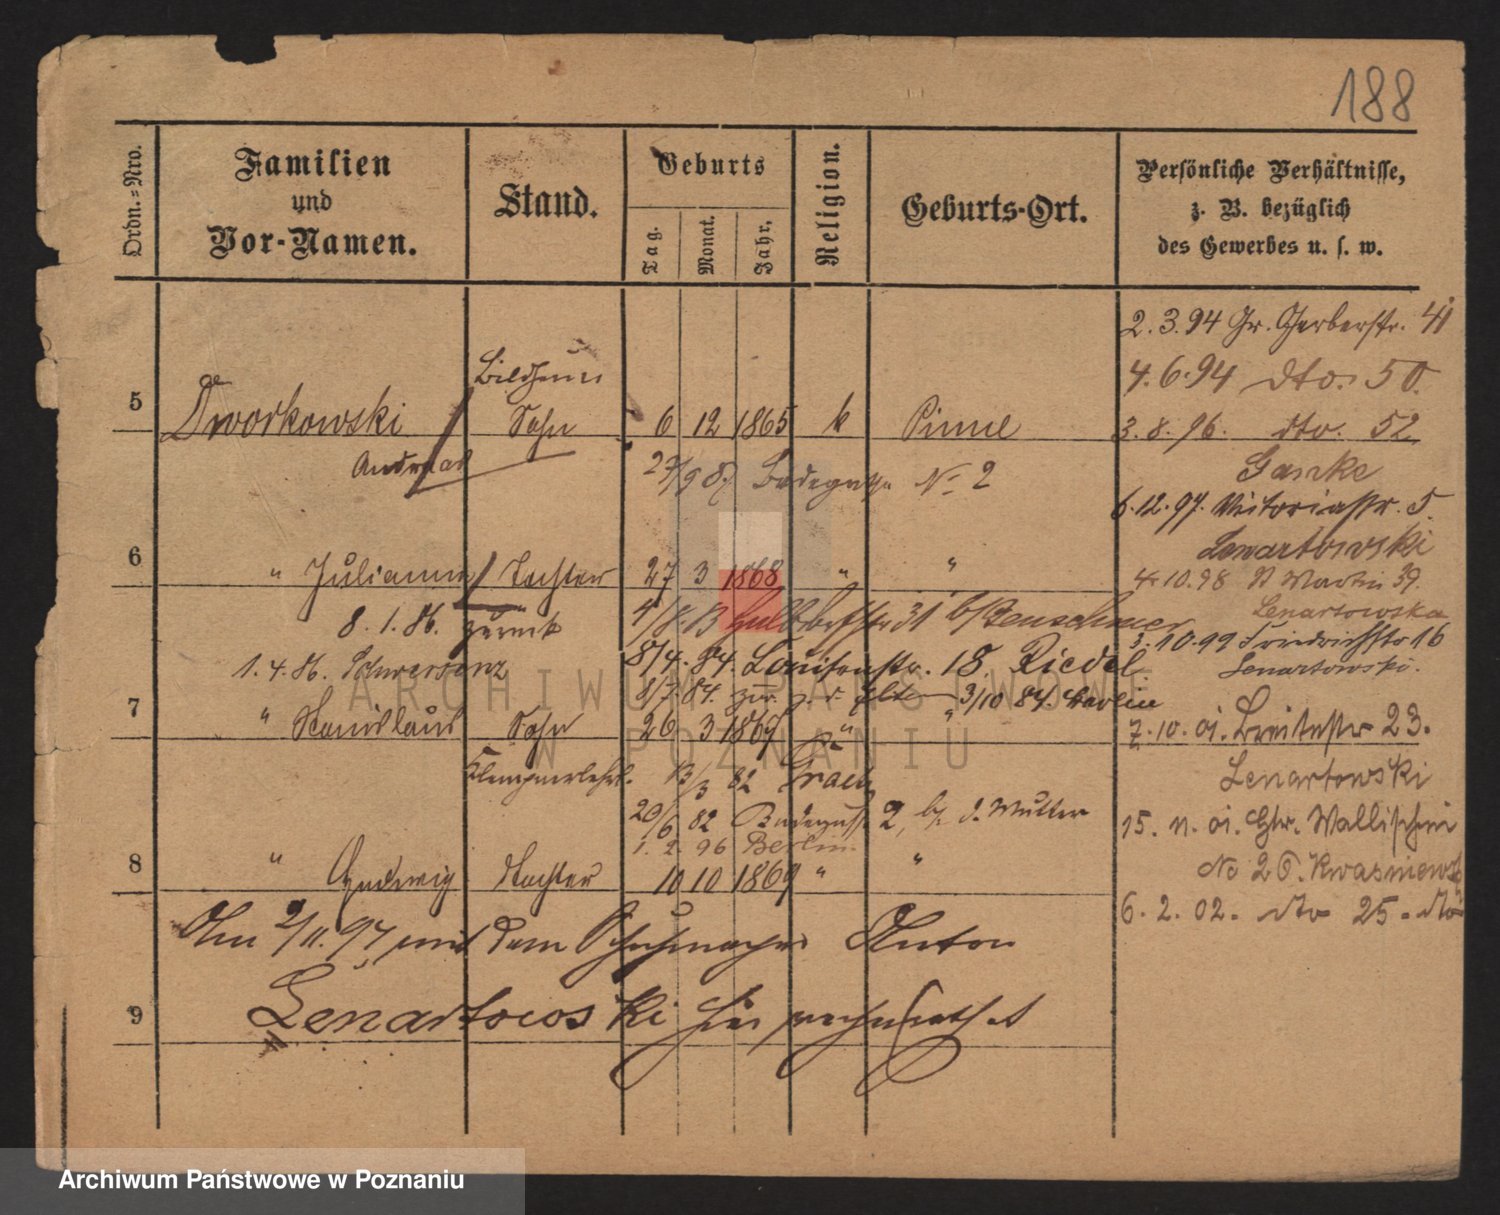 188
Ordn.=Nro.
Familien
und
Vor-Namen.
Stand.
Geburts
Tag.
Monat.
Jahr.
Religion.
Geburts-Ort.
Persönliche Verhältnisse,
z. B. bezüglich
des Gewerbes u. s. w.
2.3.94 Gr. Gerberstr. 41
4.6.94 dto. 50.
5 Dworkowski Sohn 6 12 1865 k Pinne
3.8.96. dto. 52
Andreas
27/9 Badegasse No 2
Ganke
6.12.97. Victoriastr. 5.
Lenartowski
6 " Julianna Tochter 27 3 1868 " "
4.10.98 St Martin 39.
8.1.86. zurück
4/8. 31 b/
Lenartowska
3.10.99 Friedrichstr 16
1.4.86. Schwersenz
8/4. 84. Louisenstr. 18. Riedel
Lenartowski.
8/7. 84. zur. z. d. Eltern 3/10 84. Berlin
7 " Stanislaus Sohn 26 3 1869 " "
7.10.01. Breitestr 23.
Klempnerlehrl. 13/3 82
Lenartowski
20/6 82 Badegasse 2, b/ d. Mutter
15.11.01. Wallischei
1.2.96 Berlin.
No 26. Kwasniewsk
8 " Hedwig Tochter 10 10 1869 " "
6.2.02. dto 25. dto
Am 2/11.97 mit dem Schuhmacher Anton
9 Lenartowski hier verheirathet
ARCHIWUM PAŃSTWOWE
W POZNANIU
Archiwum Państwowe w Poznaniu